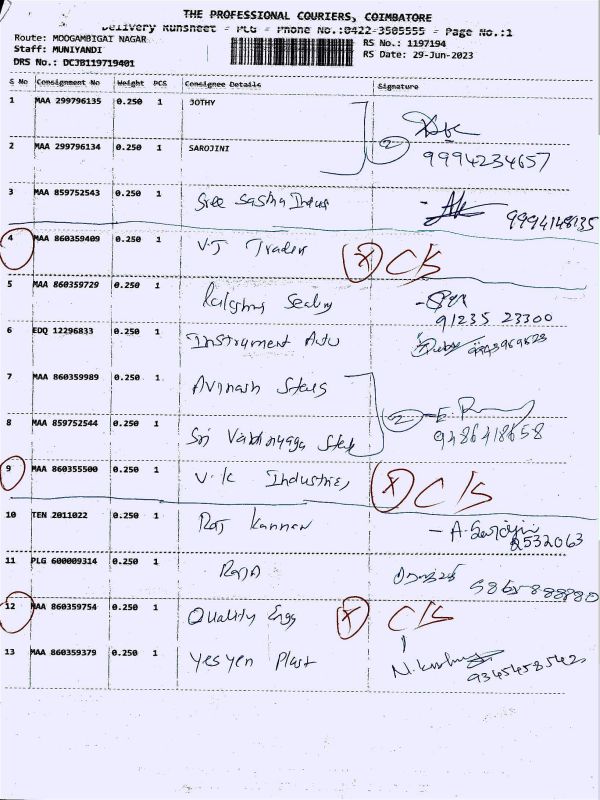 THE PROFESSIONAL COURIERS, COIMBATORE
Delivery Runsheet - PLG - Phone No.:0422-3505555 - Page No.:1
Route: MOOGAMBIGAI NAGAR
RS No.: 1197194
Staff: MUNIYANDI
RS Date: 29-Jun-2023
DRS No.: DCJB119719401
S No Consignment No Weight PCS Consignee Details Signature
1 MAA 299796135 0.250 1 JOTHY
2 MAA 299796134 0.250 1 SAROJINI 2
9994234657
3 MAA 859752543 0.250 1 Sree Sastha
9994148135
4 MAA 860359409 0.250 1 V.J Traders X C/S
5 MAA 860359729 0.250 1
91235 23300
6 EDQ 12296833 0.250 1 Instrument Auto
7 MAA 860359989 0.250 1 Avinash Steels
8 MAA 859752544 0.250 1 Sri Steel 2
9486418658
9 MAA 860355500 0.250 1 V.K Industries X C/S
10 TEN 2011022 0.250 1 Raj Kannan A. Sarojini
2532063
11 PLG 600009314 0.250 1 Raja
12 MAA 860359754 0.250 1 Quality Engg X C/S
13 MAA 860359379 0.250 1 Yesyen Plast
9345458542